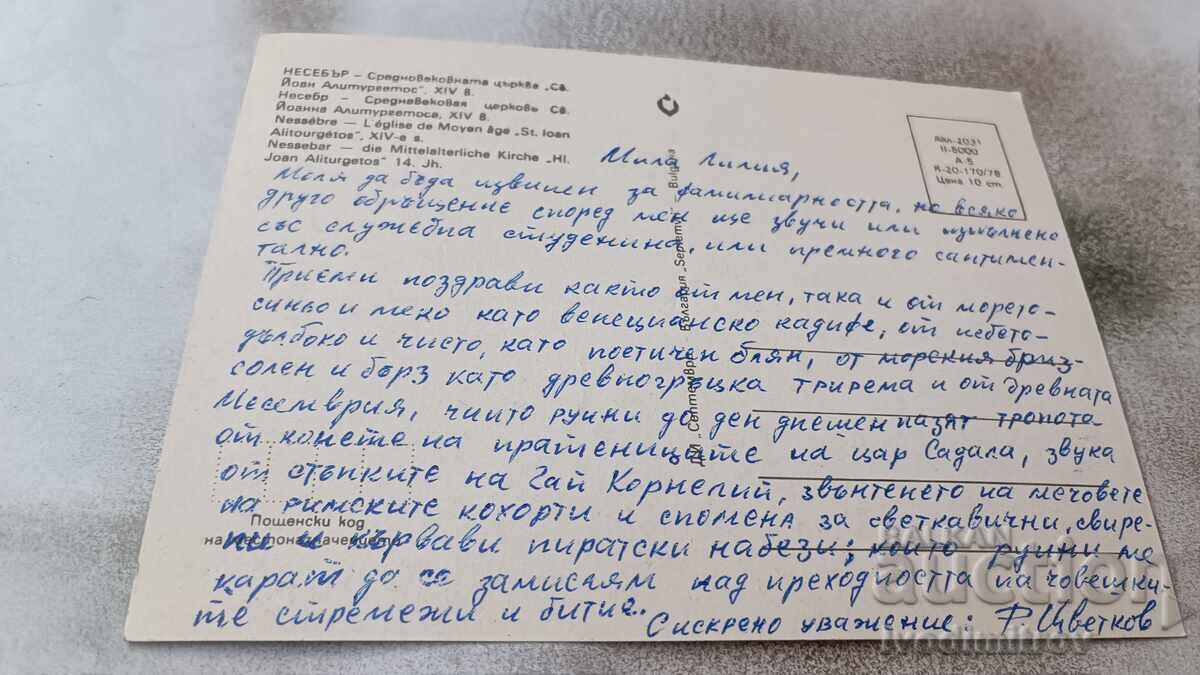 НЕСЕБЪР – Средновековната църква „Св.
Йоан Алитургетос", XIV в.
Несебр – Средневековая церковь Св.
Йоанна Алитургетоса, XIV в.
Nessébre – L'église de Moyen âge „St. Ioan
Alitourgétos", XIV-e s.
Nessebar – die Mittelalterliche Kirche „Hl.
Joan Aliturgetos" 14. Jh.
2031
II-8000
А-5
Я-20-170/78
Цена 10 ст.
ДИ „Септември" – България „Septemvri" – Bulgaria
Мила Лилия,
Моля да бъда извинен за фамилиарността, но всяко
друго обръщение според мен ще звучи или изпълнено
със служебна студенина, или премного сантимен-
тално.
Приеми поздрави както от мен, така и от морето-
синьо и меко като венецианско кадифе, от небето-
дълбоко и чисто, като поетичен блян, от морския бриз-
солен и бърз като древногръцка трирема и от древната
Месемврия, чиито руини до ден днешен пазят тропота
от конете на пратениците на цар Садала, звука
от стъпките на Гай Корнелий, звънтенето на мечовете
на римските кохорти и спомена за светкавични, свире-
пи и кървави пиратски набези; които руини ме
карат да се замислям над преходността на човешки-
те стремежи и битие..
Пощенски код
на местоназначението
С искрено уважение: Р. Цветков
BALKAN
auction
ivodimitrov